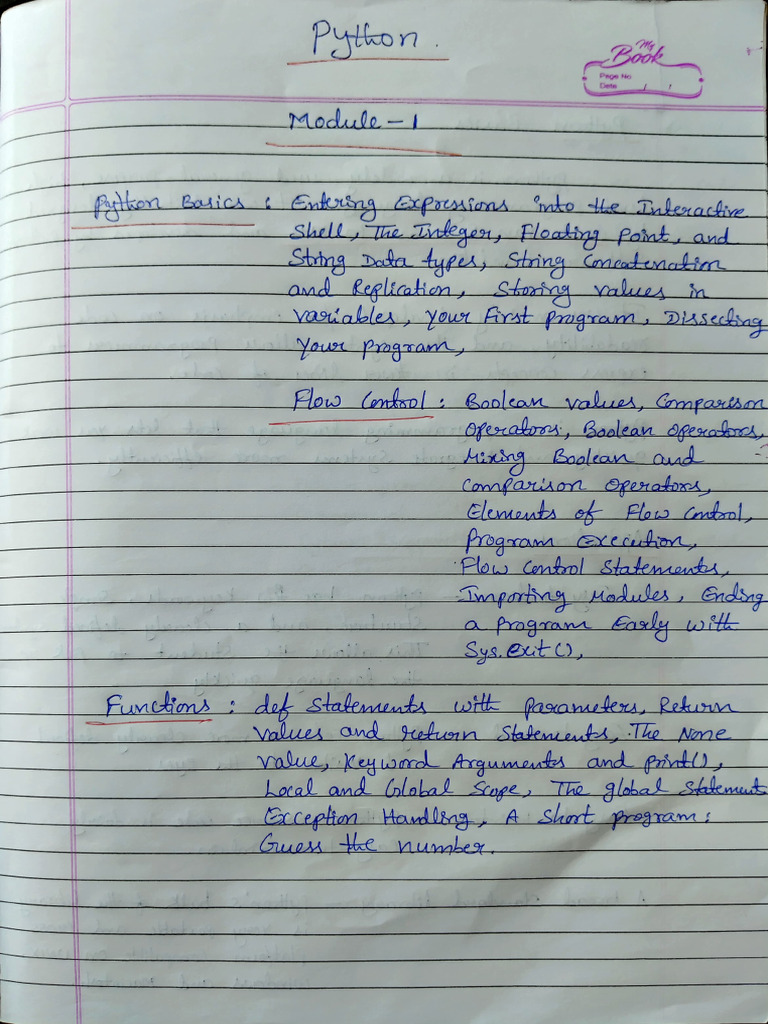 Python.
My
Book
Page No
Date / /
Module - 1
Python Basics : Entering Expressions into the Interactive
Shell, The Integer, Floating point, and
String Data types, String Concatenation
and Replication, Storing values in
variables, your First program, Dissecting
your program,
Flow Control : Boolean values, Comparison
operators, Boolean operators,
Mixing Boolean and
Comparison operators,
Elements of Flow Control,
program Execution,
Flow control Statements,
Importing Modules, Ending
a program Early with
Sys.exit(),
Functions : def Statements with parameters, Return
values and return Statements, The None
value, Keyword Arguments and print(),
Local and Global Scope, The global Statement
Exception Handling, A Short program :
Guess the number.